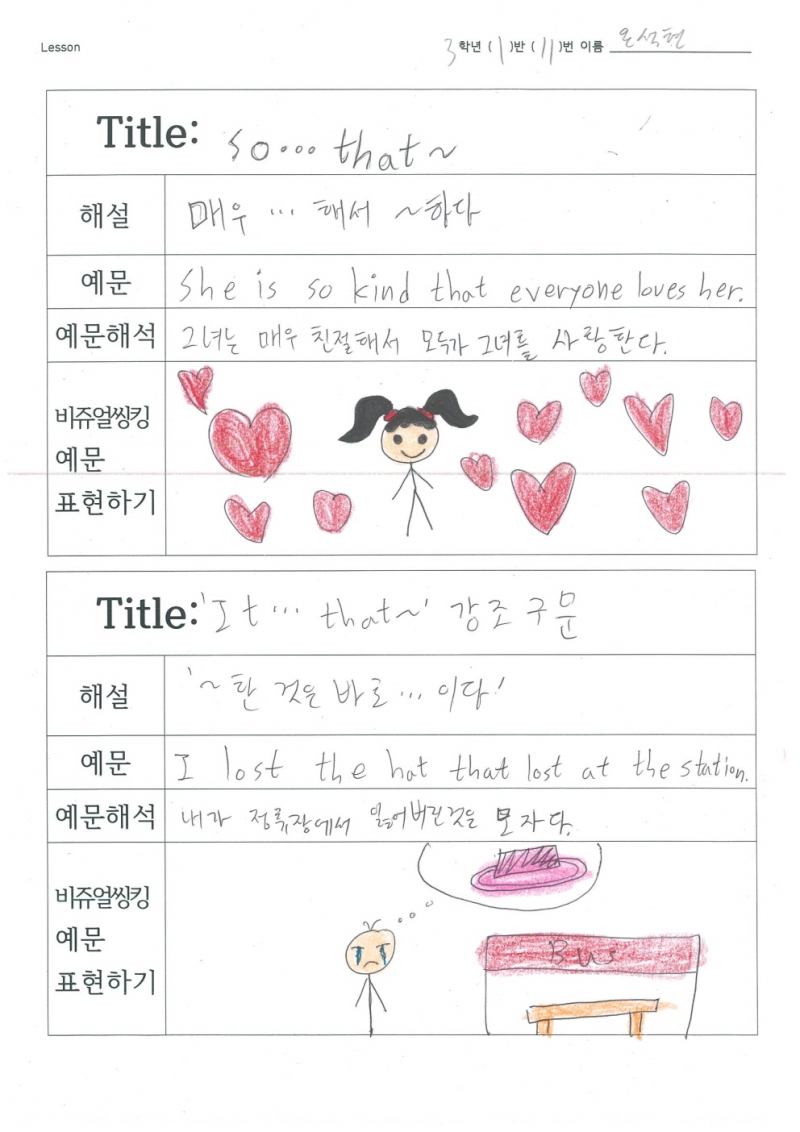 Lesson
3학년 ( 1 )반 ( 11 )번 이름 온석현
Title: so... that~
해설
매우 ... 해서 ~하다
예문
She is so kind that everyone loves her.
예문해석
그녀는 매우 친절해서 모두가 그녀를 사랑한다.
비쥬얼씽킹
예문
표현하기
Title: 'It ... that~' 강조 구문
해설
'~한 것은 바로 ... 이다!
예문
I lost the hat that lost at the station.
예문해석
내가 정류장에서 잃어버린것을 모자다.
비쥬얼씽킹
예문
표현하기
Bus